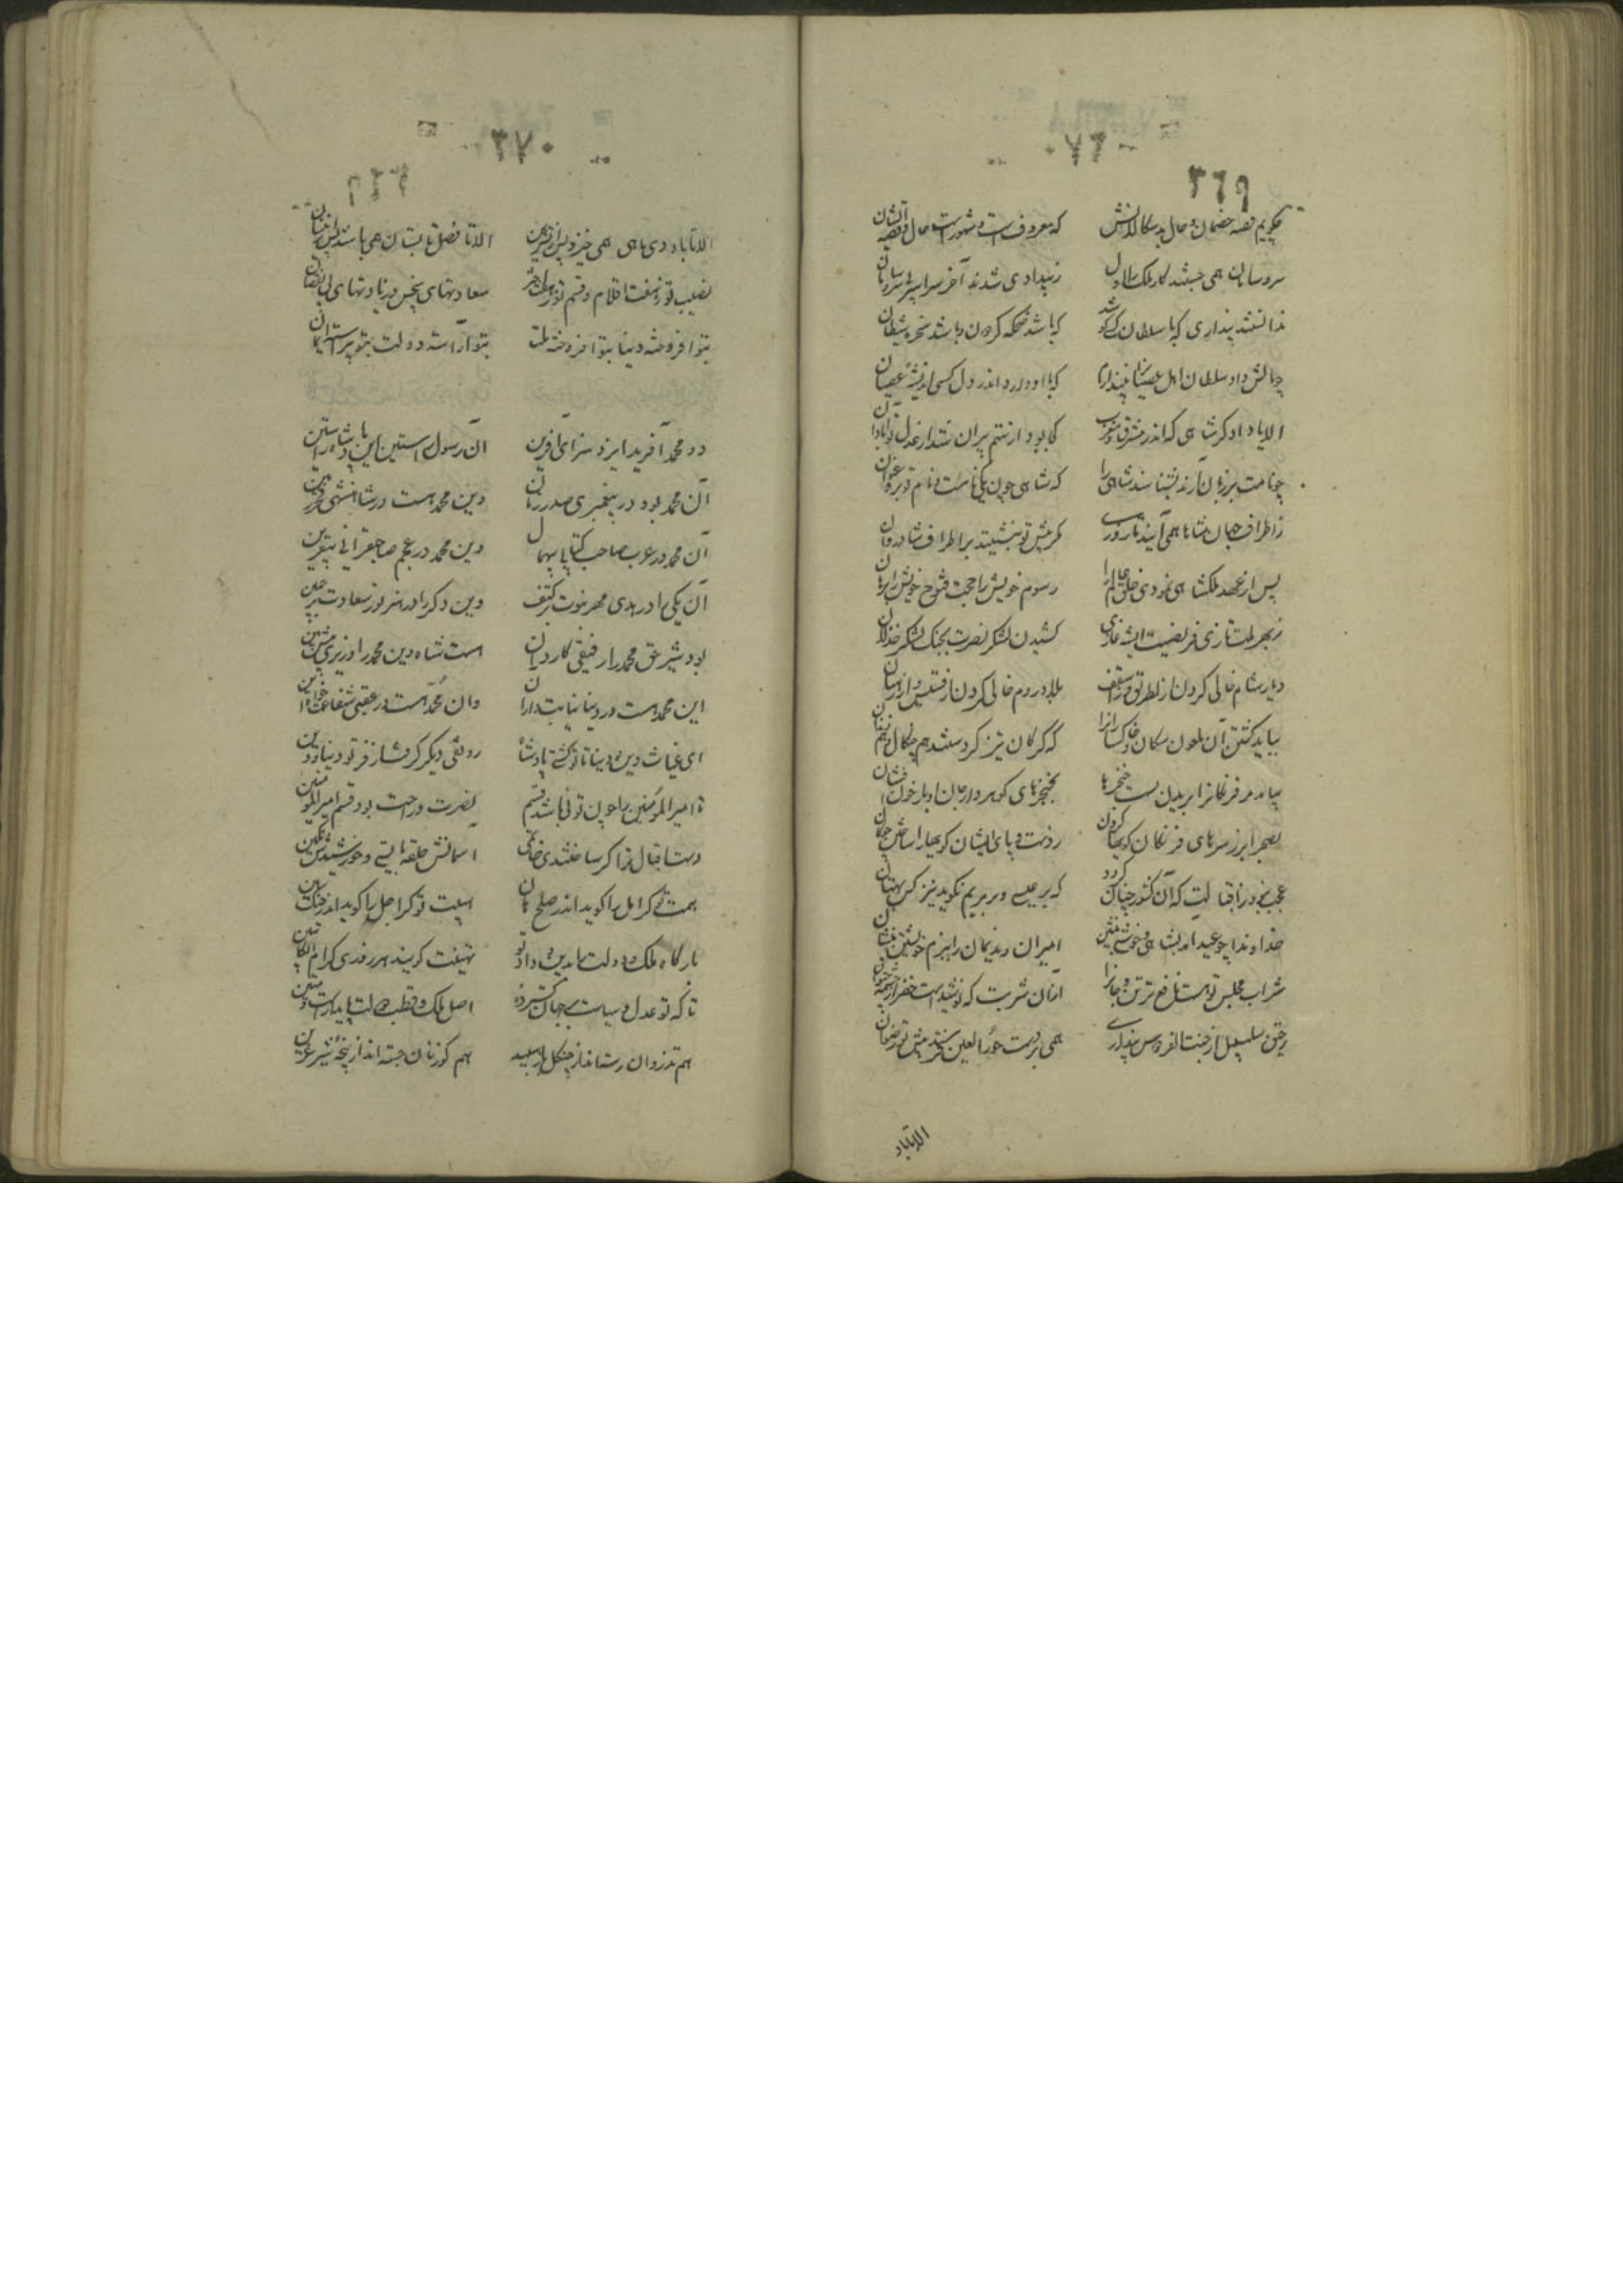 ۳۶۹
چکویم قصه خصمان و حال بدسکالانش که معروفست و مشهورست حال و قصه ایشان
سر و سامان همی جستند کار ملک سلطان زبیدادی شدند آخر سراسر بی سر و سامان
ندانستند پنداری که با سلطان که باشد ضحکه کردن باشد سخره شیطان
چو مالش داد سلطان اهل عصیانرا نپندارم که با او دارد اندر دل کسی اندیشه عصیان
الا یا دادکر شاهی که اندر مشرق و مغرب کجا بود از ستم ویران شد از عدل تو آبادان
چو نامت بر زبان آرند بشناسند شاهی را که شاهی چون یکی نامست و نام تو برو عنوان
ز اطراف جهان شاها همی آیند تا روزی که پیش تو نبشینند بر اطراف شادروان
پس از عهد ملکشاهی نمودی خلق عالم را رسوم خویش را حجت فتوح خویش را برهان
ز بهر ملت تازی فریضست ای شه غازی کشیدن لشکر نصرت بجنک لشکر خذلان
دیار شام خالی کردن از بطریق و از اسقف بلاد روم خالی کردن از قسیس و از رهبان
بباید کشتن آن ملعون سکان و خاکسارانرا که کرکان تیز کردستند هم چنکال و هم دندان
بباید مر فرنکانرا بریدن پست حنجرها بخنجرهای کوهردار جان اوبار خون افشان
بصحرا بر ز سرهای فرنکان کویها کردن ز دست و پای ایشان کویها را ساختن چوکان
عجب نبود ز اقبالت که آن کشور چنان کردد که بر عیسی و بر مریم نکوید نیز کس بهتان
خداوندا چو عید آمد بشاهی و خوشی بنشین امیران و ندیمان را ببزم خویشتن بنشان
شراب مجلس تو هست نافع‌تر تن و جانرا از آن شربت که نوشیدست خضر از چشمه حیوان
رحیق سلسبیل از جنت الفردوس پنداری همی بر دست حور العین فرستد پیش تو رضوان
الا تا باد
۳۷۰
الا تا باد دی ماهی همی خیزد پس از تشرین الا تا فصل تابستان همی باشد پس از نیسان
نصیب تو ز هفت اقلام و قسم تو ز هفت اختر سعادتهای بی نحس و زیادتهای بی نقصان
بتو افروخته دنیا بتو افروخته ملت بتو آراسته دولت بتو پیراسته ایمان
دو محمد آفرید ایزد سزای آفرین آن رسول راستین این پادشاه راستین
آن محمد بود در پیغمبری صدر زمان وین محمد هست در شاهنشهی فخر زمین
آن محمد در عرب صاحب کتابی بیهمال وین محمد در عجم صاحبقرانی بیقرین
آن یکی را در هدی مهر نبوت بر کتف وین دکر را در هنر نور سعادت بر جبین
بود شیر حق محمد را رفیقی کاردان هست شاه دین محمد را وزیری پیش بین
این محمد هست در دنیا نیابت دار آن وان محمد هست در عقبی شفاعت خواه این
ای غیاث دین و دنیا تا تو کشتی پادشاه رونقی دیکر کرفتست از فر تو دنیا و دین
تا امیر المؤمنین را چون تویی باشد قسیم نصرت و راحت بود قسم امیر المؤمنین
دست اقبال ترا کر ساختندی خاتمی آسمانش حلقه بایستی و خورشیدش نکین
همت تو کر امل را کوید اندر صلح هان هیبت تو کر اجل را کوید اندر جنک هین
بارکاه ملک و دولت را بدین و داد تو تهنیت کویند هر روزی کرام الکاتبین
تا که تو عدل و سیاست بر جهان کسترده اصل ملک و قطب دولت پایدارست و متین
هم تذروان رسته‌اند از چنکل باز سپید هم کوزنان جسته‌اند از پنجه شیر عرین